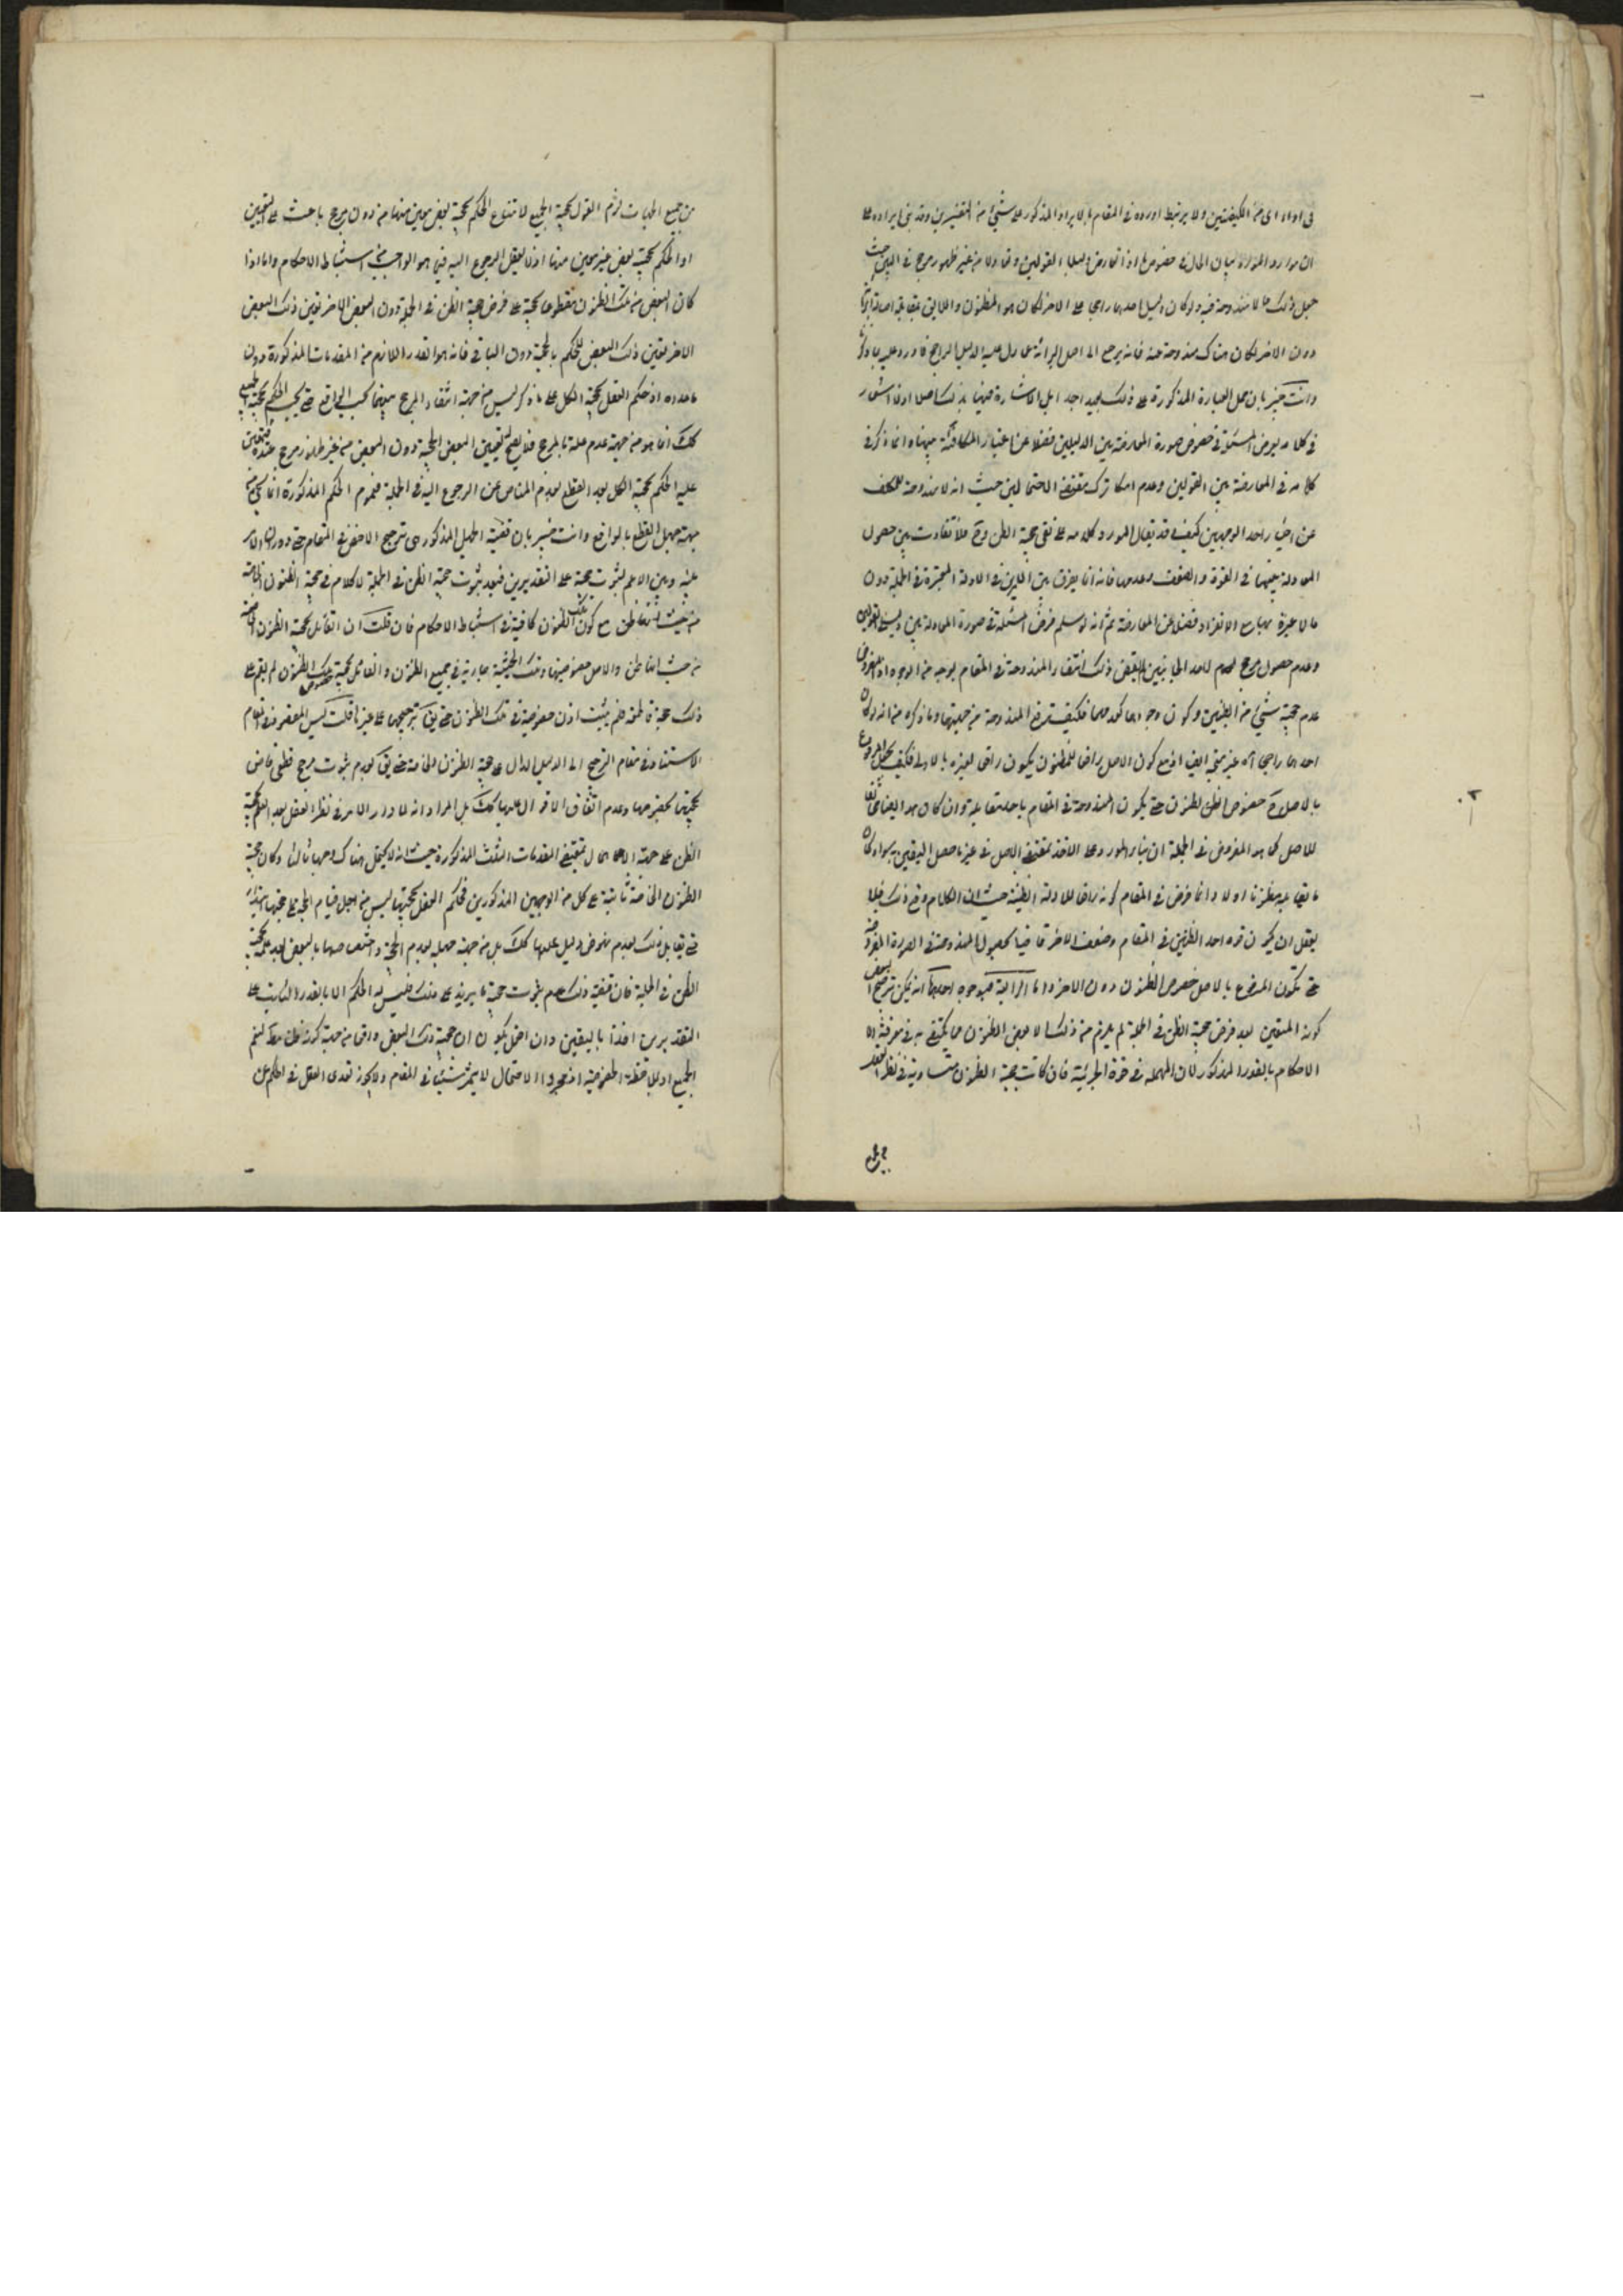 في اداء اى من الكيفيتين ولا يرتبط اورده في المقام بالايراد المذكور على شيئ من التفسيرين وقد بنى ايراده على
ان موارد المراد بيان الحال في خصوص ما اذا تعارض دليلا القولين من غير ظهور مرجح في البين حيث
جعل ذلك مما لا مندوحة فيه ولو كان دليل احدهما راجحا على الاخر لكان هو المظنون
دون الاخر لكان هناك مندوحة عنه فانه يرجع الى اصل البرائة على ما دل عليه الدليل الراجح فاورد عليه بما ذكر
وانت خبير بان حمل العبارة المذكورة على ذلك بعيد جدا بل لا اشارة فيها بذلك اصلا اذ لا اشعار
في كلامه بفرض المسئلة في خصوص صورة المعارضة بين الدليلين فضلا عن اعتبار المكافئة بينهما انما ذكر في
كلامه في المعارضة بين القولين وعدم امكان ترك مقتضى الاحتمالين حيث انه لا مندوحة للمكلف
عن اختيار احد الوجهين كيف وقد يقال المورد كلامه على نفى حجية الظن وح فلا تفاوت بين حصول
المعادلة بينهما في القوة والضعف وعدمها فانه انما يفرق بين الامرين في الادلة المعتبرة في الجملة دون
ما لا عبرة بها مع الانفراد فضلا عن المعارضة ثم انه لو سلم فرض المسئلة في صورة المعادلة بين دليلى القولين
وعدم حصول مرجح لاحد الجانبين لم يقض ذلك انتفاء المندوحة في المقام لوجه من الوجوه اذ المفروض
عدم حجية شيئ من الظنين وكون وجودهما كعدمهما فكيف يرفع المندوحة من جهتهما وما ذكره من انه لو كان
احدهما راجحا اه غير متجه ايضا اذ مع كون الاصل رافعا للمظنون يكون رافعا لغيره بالاولى فكيف يجعل المرفوع
بالاصل ح خصوص المظنون حتى يكون المندوحة في المقام باحد متقابليه وان كان هو ايضا
للاصل كما هو المفروض في الجملة ان بناء المورد على الاخذ بمقتضى الاصل في غير ما حصل اليقين به سواء كان
ما يقابله مظنونا اولا وانما فرض في المقام كونه رافعا للادلة الظنية حيث ان الكلام وقع في ذلك فلا
يعقل ان يكون قوة احد الظنين في المقام وضعف الاخر قاضيا بحصول المندوحة في الصورة المفروضة
حتى يكون المرفوع بالاصل خصوص المظنون دون الاخر واما الرابع فبوجوه احدها انه يمكن ترجيح البعض
كونه المتيقن بعد فرض حجية الظن في الجملة لم يلزم من ذلك الا بعض الظنون مما يكتفى به في معرفة
الاحكام بالقدر المذكور لان المهملة في قوة الجزئية فان كانت حجية الظنون متساوية في نظر العقل
من جميع الجهات لزم القول بحجية الجميع لامتناع الحكم بحجية بعض معين منها من دون مرجح باعث على التعيين
او الحكم بحجية بعض غير معين منها اذ لا يعقل الرجوع اليه فيما هو الواجب من استنباط الاحكام واما اذا
كان البعض من تلك الظنون مقطوعا بحجيته على فرض حجية الظن في الجملة دون البعض الاخر تعين ذلك البعض
الاخر تعين ذلك البعض للحكم بالحجية دون الباقى فانه هو القدر اللازم من المقدمات المذكورة دون
ما عداه اذ حكم العقل بحجية الكل على ما ذكر ليس من جهة انتفاء المرجح بينهما بحسب الواقع حتى يجب الحكم بحجية الجميع
كك انما هو من جهة عدم علمه بالمرجح فلا يصح له تعيين البعض للحجية دون البعض من غير ظهور مرجح عنده فيتعين
عليه الحكم بحجية الكل بعد القطع بعدم المناص عن الرجوع اليه في الجملة فعموم الحكم المذكورة انما يجئ من
جهة جهل العقل بالواقع وانت خبير بان قضية الجهل المذكور هى ترجيح الاخص في المقام حتى دوران الامر
بينه وبين الاعم لثبوت حجيته على التقديرين فبعد ثبوت حجية الظن في الجملة لا كلام في حجية الظنون الخاصة
من حيث انها ظن مع كون تلك الظنون كافية في استنباط الاحكام فان قلت ان القائل بحجية الظنون الخاصة
من حيث انها ظن والاصل خصوصيتها وتلك الحيثية جارية في جميع الظنون والقائل بحجية تلك الظنون لم يقم على
ذلك حجة قاطعة فلم يثبت اذن خصوصية في تلك الظنون حتى يق بترجيحها على غيرها قلت ليس المقصود في المقام
الاستناد في مقام الترجيح الى الدليل الدال على حجية الظنون الخاصة حتى يق بعدم ثبوت مرجح قطعى قاض
بحجيتها بخصوصها وعدم اتفاق الاقوال عليها كك بل المراد انه لما دار الامر في نظر العقل بعد العلم بحجية
الظن على جهة الاجمال بمقتضى المقدمات الثلث المذكورة حيث انه لا يحتمل هناك وجها ثالثا وكان حجية
الظنون الخاصة ثابتة على كل من الوجهين المذكورين فحكم العقل بحجيتها ليس من اجل قيام الحجة على حجيتها ابتداء
حتى يقابل ذلك بعدم نهوض دليل عليها كك بل من جهة جهله بعدم الحجية واختصاصها بالبعض بعد علمه بحجية
الظن في الجملة فان قضية ذلك عدم ثبوت حجية ما يزيد على ذلك فليس له الحكم الا بالقدر الثابت على
التقديرين اخذا باليقين وان احتمل كون حجية ذلك البعض واقعا من جهة كونه ظنا مطلقا فيعم
الجميع او لملاحظة الخصوصية اذ مجرد الاحتمال لا يثمر شيئا في المقام ولا يجوز تعدى العقل في الحكم عن